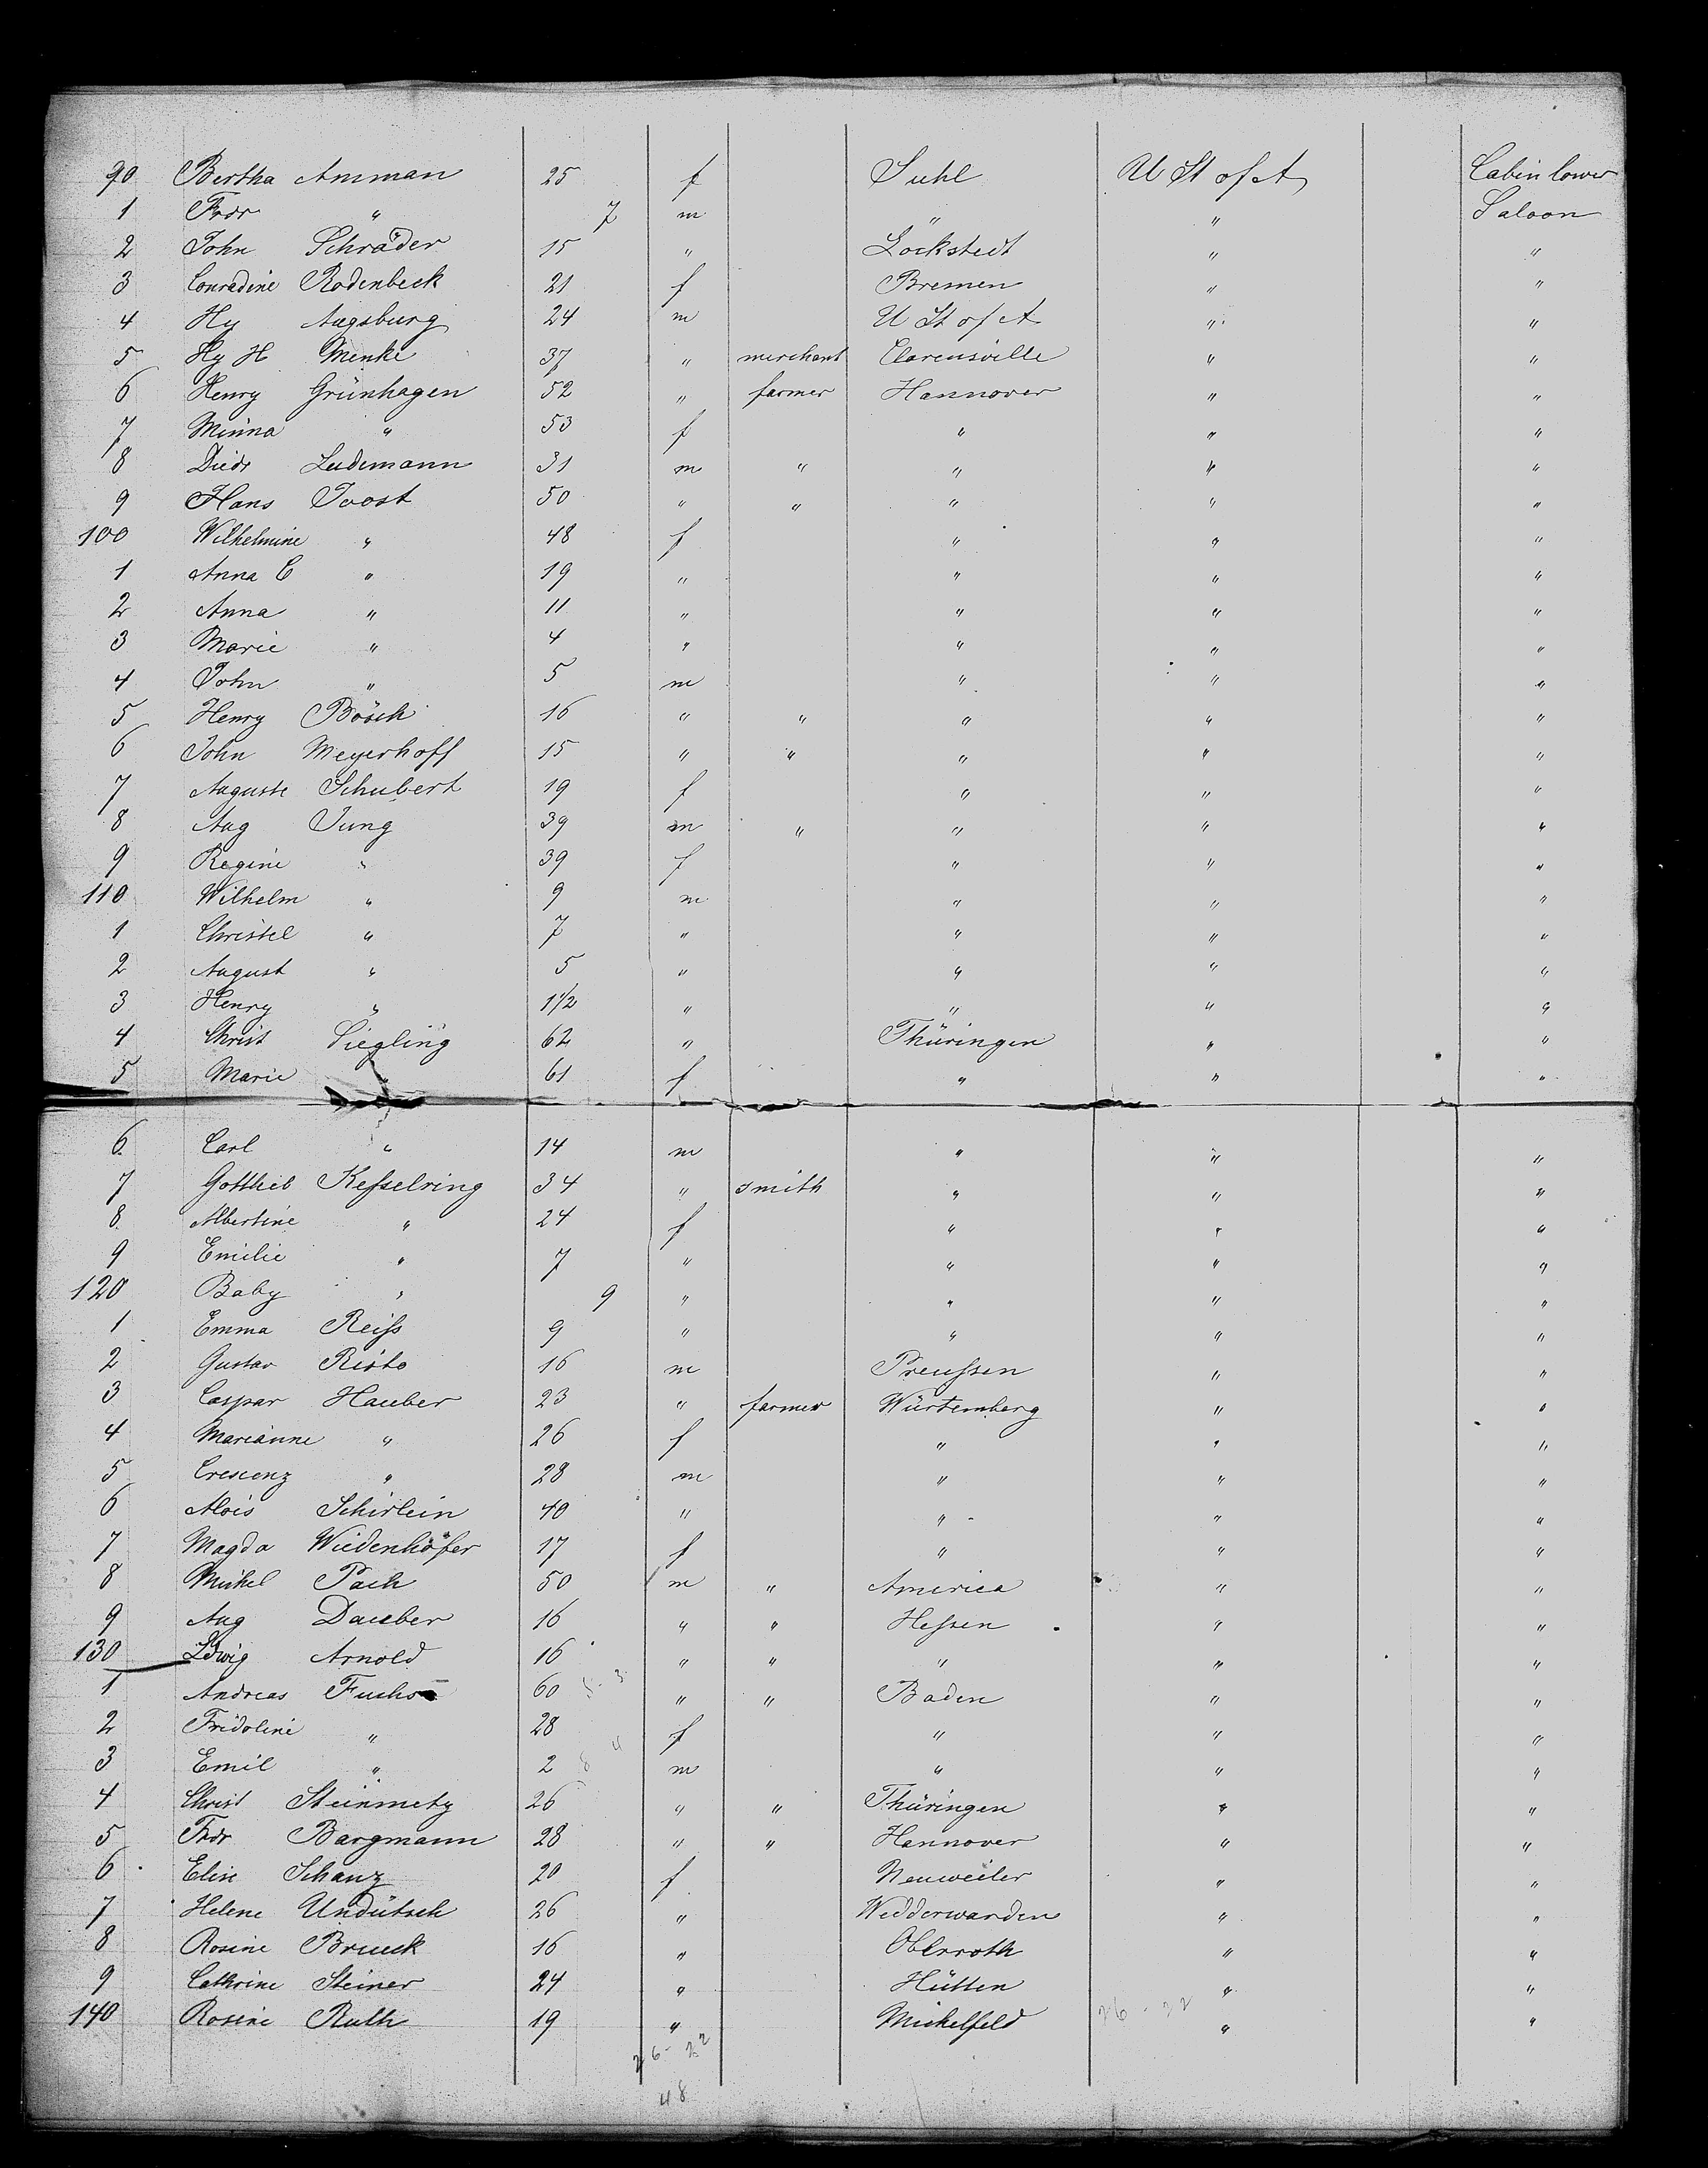 90 Bertha Amman 25 f Suhl U St of A Cabin lower
1 Fedr " 7 m " " Saloon
2 John Schräder 15 " Lockstedt " "
3 Conradine Rodenbeck 21 f Bremen " "
4 Hy Augsburg 24 m U St of A " "
5 Hy H Menke 37 " merchant Clarensville " "
6 Henry Grünhagen 52 " farmer Hannover " "
7 Minna " 53 f " " "
8 Diedr Ludemann 31 m " " " "
9 Hans Joost 50 " " " " "
100 Wilhelmine " 48 f " " "
1 Anna C " 19 " " " "
2 Anna " 11 " " " "
3 Marie " 4 " " " "
4 John " 5 m " " "
5 Henry Bösch 16 " " " " "
6 John Meyerhoff 15 " " " " "
7 Auguste Schubert 19 f " " "
8 Aug Jung 39 m " " " "
9 Regine " 39 f " " "
110 Wilhelm " 9 m " " "
1 Christel " 7 " " " "
2 August " 5 " " " "
3 Henry " 1 1/2 " " " "
4 Christ Siegling 62 " Thüringen " "
5 Marie " 61 f " " "
6 Carl " 14 m " " "
7 Gottlieb Kesselring 34 " smith " " "
8 Albertine " 24 f " " "
9 Emilie " 7 " " " "
120 Baby " 9 " " " "
1 Emma Reiss 9 " " " "
2 Gustav Risto 16 m Preussen " "
3 Caspar Hauber 23 " farmer Würtemberg " "
4 Marianne " 26 f " " "
5 Crescenz " 28 m " " "
6 Alois Schirlein 40 " " " "
7 Magda Wiedenhöfer 17 f " " "
8 Michel Pach 50 m " America " "
9 Aug Dauber 16 " " Hessen " "
130 Ldwig Arnold 16 " " " " "
1 Andreas Fuchs 60 " " Baden " "
2 Fridoline " 28 f " " "
3 Emil " 2 m " " "
4 Christ Steinmetz 26 " " Thüringen " "
5 Fedr Bargmann 28 " " Hannover " "
6 Elise Schanz 20 f Neuweiler " "
7 Helene Undütsch 26 " Wedderwarden " "
8 Rosine Brueck 16 " Oberroth " "
9 Cathrine Steiner 24 " Hütten " "
140 Rosine Ruth 19 " Michelfeld " "
26-22
26-22
48